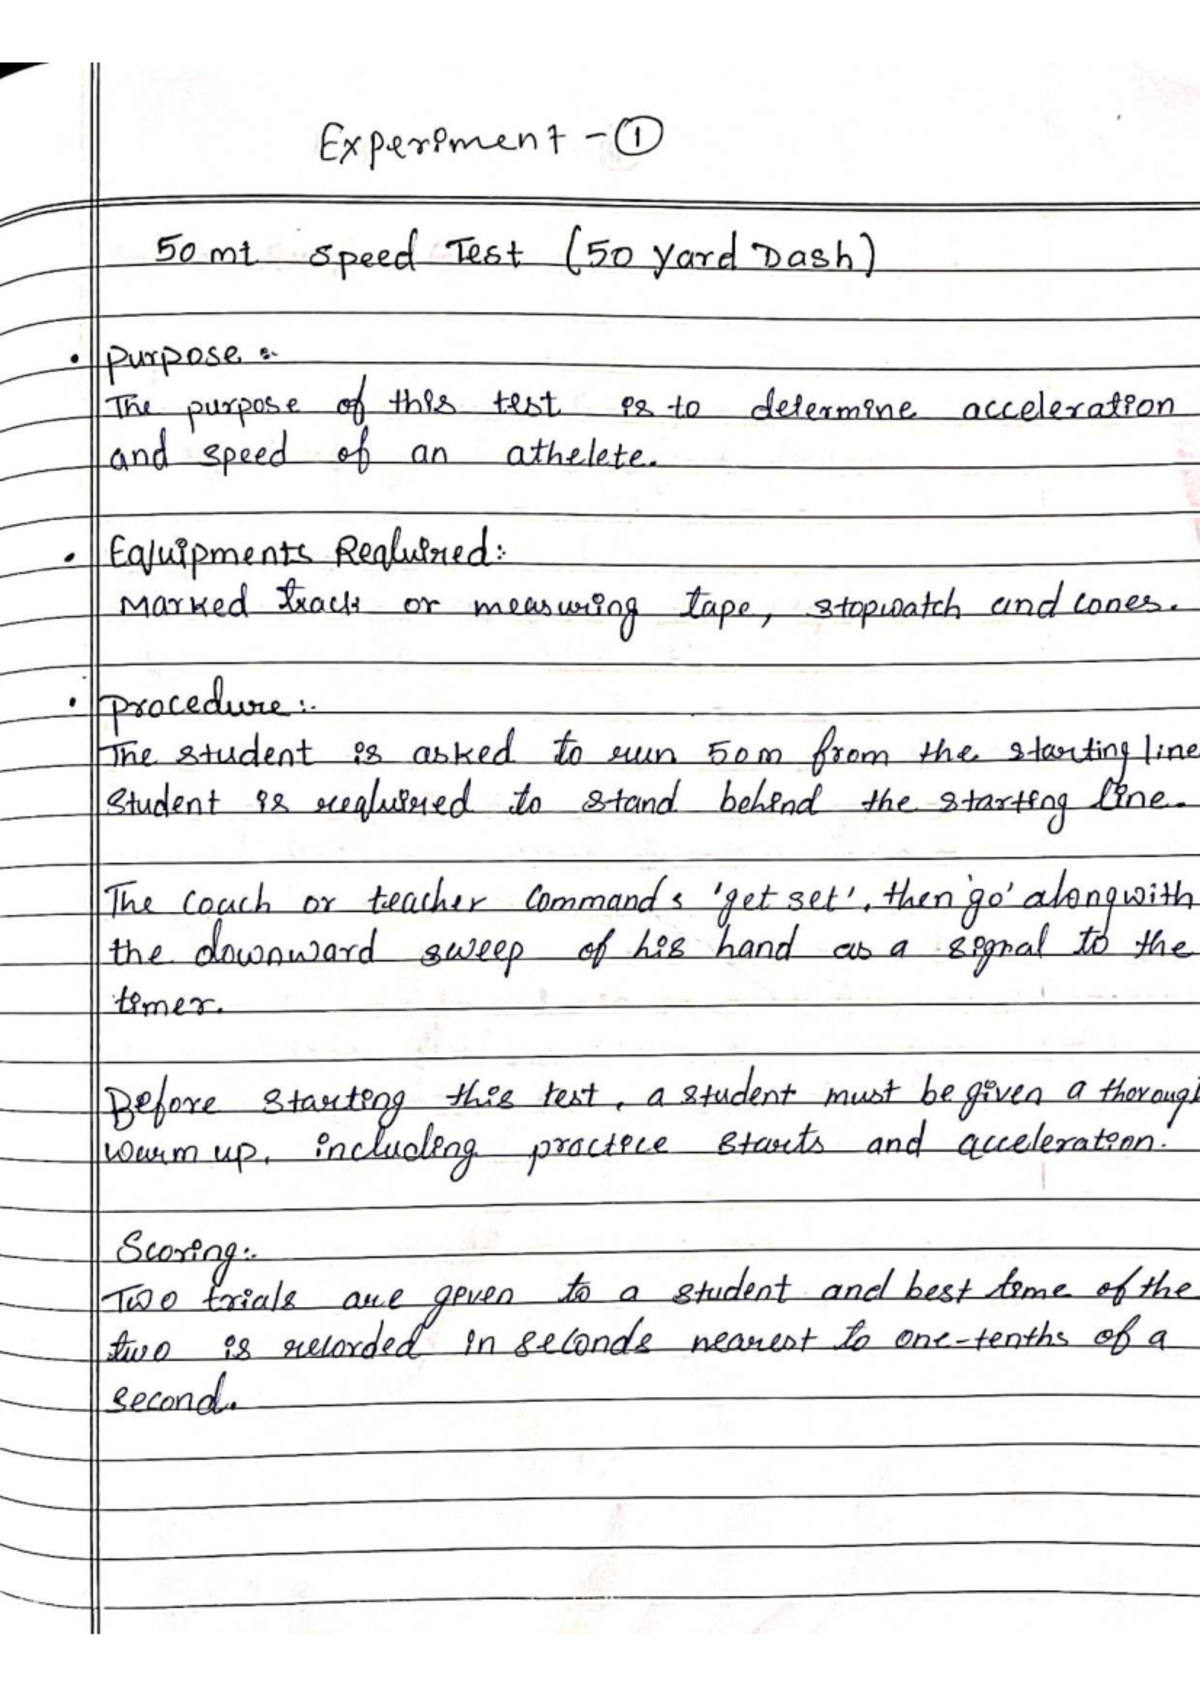 Experiment - ①
50 mt Speed Test (50 Yard Dash)
• Purpose :-
The purpose of this test is to determine acceleration
and speed of an athelete.
• Equipments Required:
Marked track or measuring tape, stopwatch and cones.
• Procedure :-
The student is asked to run 50m from the starting line
Student is required to stand behind the starting line.
The coach or teacher commands 'get set', then 'go' alongwith
the downward sweep of his hand as a signal to the
timer.
Before starting this test, a student must be given a thorough
warm up, including practice starts and acceleration.
Scoring:-
Two trials are given to a student and best time of the
two is recorded in seconds nearest to one-tenths of a
second.